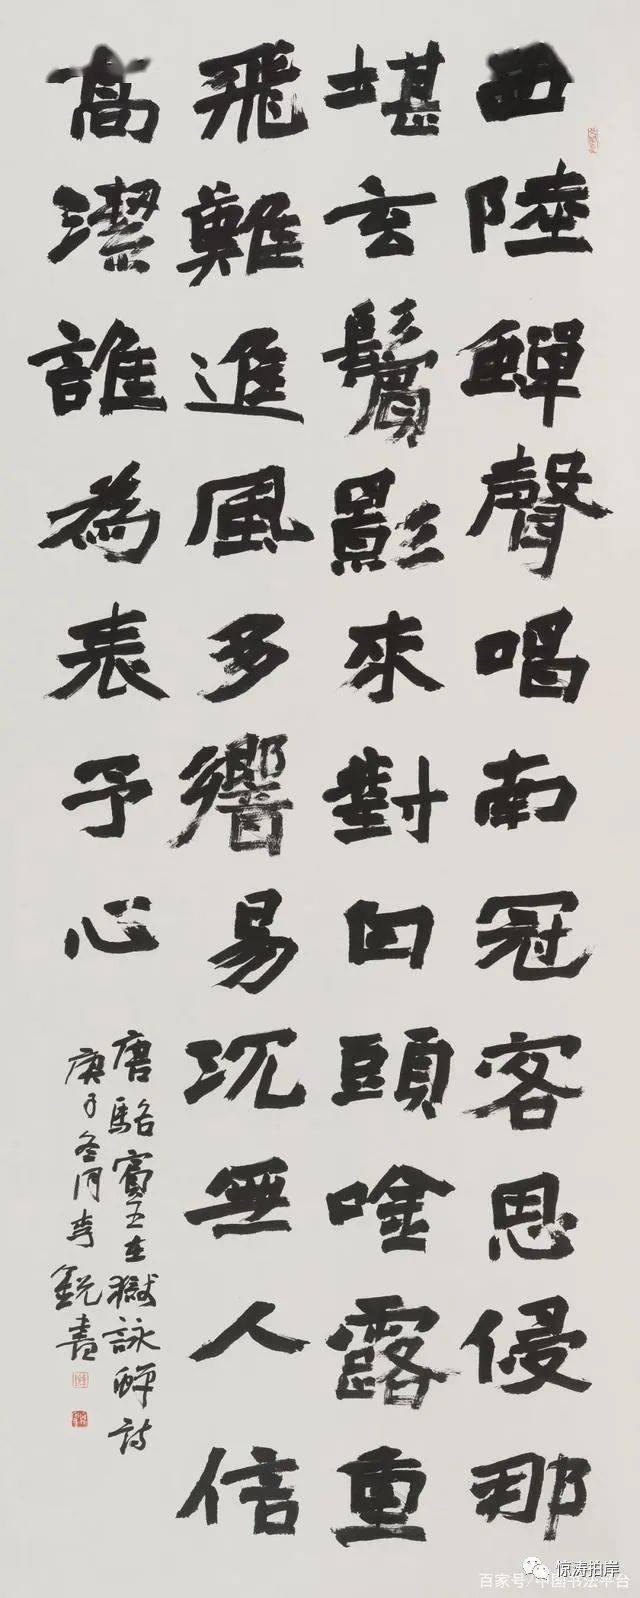 西陸蟬聲唱南冠客思侵那
堪玄鬢影來對白頭唫露重
飛難進風多響易沉無人信
高潔誰為表予心
唐駱賓王在獄詠蟬詩
庚子冬月李銳書
惊涛拍岸
百家号/中国书法平台